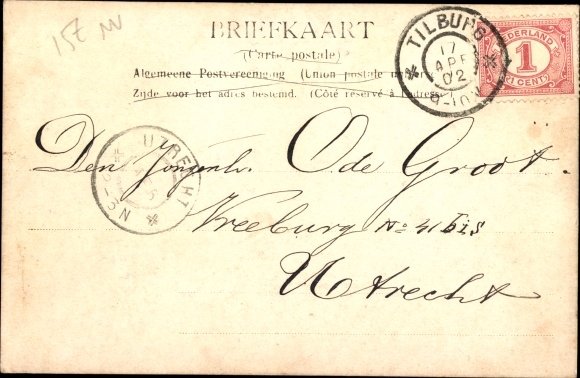 15E
BRIEFKAART
(Carte postale)
Algemeene Postvereeniging (Union postale
Zijde voor het adres bestemd. (Côté réservé à l'adres
TILBURG
17
APR
02
NEDERLAND
1
CENT
UTRECHT
Den Jongenh. O. de Groot.
Vreeburg No 41 bis
Utrecht